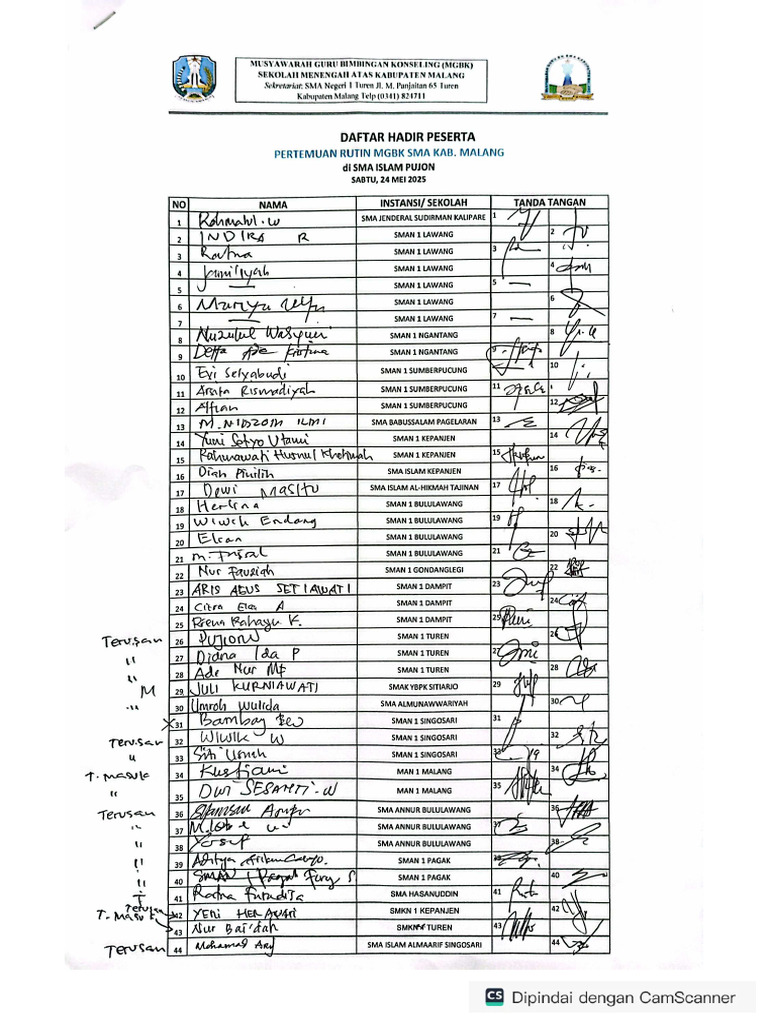 MUSYAWARAH GURU BIMBINGAN KONSELING (MGBK)
SEKOLAH MENENGAH ATAS KABUPATEN MALANG
Sekretariat: SMA Negeri 1 Turen Jl. M. Panjaitan 65 Turen
Kabupaten Malang Telp (0341) 824711
DAFTAR HADIR PESERTA
PERTEMUAN RUTIN MGBK SMA KAB. MALANG
di SMA ISLAM PUJON
SABTU, 24 MEI 2025
NO NAMA INSTANSI/ SEKOLAH TANDA TANGAN
1 Rohmatul. W SMA JENDERAL SUDIRMAN KALIPARE 1
2 INDIRA R SMAN 1 LAWANG 2
3 Ratna SMAN 1 LAWANG 3
4 Jami'iyah SMAN 1 LAWANG 4
5 — SMAN 1 LAWANG 5 —
6 SMAN 1 LAWANG 6
7 — SMAN 1 LAWANG 7 —
8 Nuzulul Wasyuni SMAN 1 NGANTANG 8
9 Detta Ade Kristina SMAN 1 NGANTANG 9
10 Evi Setyabudi SMAN 1 SUMBERPUCUNG 10
11 Arista Riswadiyah SMAN 1 SUMBERPUCUNG 11
12 Alfian SMAN 1 SUMBERPUCUNG 12
13 M. NIDZOM ILMI SMA BABUSSALAM PAGELARAN 13
14 Yuni Setyo Utami SMAN 1 KEPANJEN 14
15 Rahmawati Husnul Khotimah SMAN 1 KEPANJEN 15
16 Diah Pinilih SMA ISLAM KEPANJEN 16
17 Dewi MASITU SMA ISLAM AL-HIKMAH TAJINAN 17
18 Herlina SMAN 1 BULULAWANG 18
19 Wiwik Endang SMAN 1 BULULAWANG 19
20 SMAN 1 BULULAWANG 20
21 M. Faisal SMAN 1 BULULAWANG 21
22 Nur Fauziah SMAN 1 GONDANGLEGI 22
23 ARIS AGUS SETIAWATI SMAN 1 DAMPIT 23
24 Citra Eka A SMAN 1 DAMPIT 24
25 Rahayu K. SMAN 1 DAMPIT 25
Terusan 26 Pujiono SMAN 1 TUREN 26
" 27 Diana Ida P SMAN 1 TUREN 27
" 28 Ade Nur SMAN 1 TUREN 28
M 29 JULI KURNIAWATI SMAK YBPK SITIARJO 29
" 30 Umroh Wulida SMA ALMUNAWWARIYAH 30
X 31 Bambang SMAN 1 SINGOSARI 31
Terusan 32 WIWIK W SMAN 1 SINGOSARI 32
" 33 Siti SMAN 1 SINGOSARI 33
T. Masuk 34 Kustiani MAN 1 MALANG 34
" 35 DWI SESANTI . W MAN 1 MALANG 35
Terusan 36 SMA ANNUR BULULAWANG 36
" 37 SMA ANNUR BULULAWANG 37
" 38 Yusuf SMA ANNUR BULULAWANG 38
" 39 Aditya SMAN 1 PAGAK 39
" 40 SMAN 1 PAGAK 40
T 41 Ratna SMA HASANUDDIN 41
Terusan
T. Masuk 42 YENI HERAWATI SMKN 1 KEPANJEN 42
43 Nur Bai'dah SMKN TUREN 43
Terusan 44 Mohamad SMA ISLAM ALMAARIF SINGOSARI 44
CS Dipindai dengan CamScanner